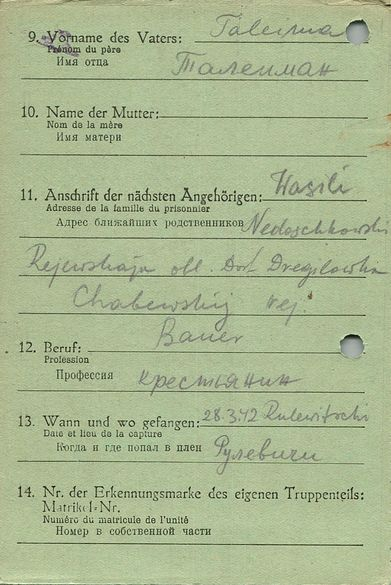 9. Vorname des Vaters:
Prénom du père
Имя отца
10. Name der Mutter:
Nom de la mère
Имя матери
11. Anschrift der nächsten Angehörigen: Wasili
Adresse de la famille du prisonnier
Адрес ближайших родственников Nedoschkowski
obl. Dorf Dregilowka
Chabewskij rej.
12. Beruf: Bauer
Profession
Профессия крестьянин
13. Wann und wo gefangen: 28.3.42 Rulewitschi
Date et lieu de la capture
Когда и где попал в плен Рулевичи
14. Nr. der Erkennungsmarke des eigenen Truppenteils:
Matrikel-Nr.
Numéro du matricule de l'unité
Номер в собственной части